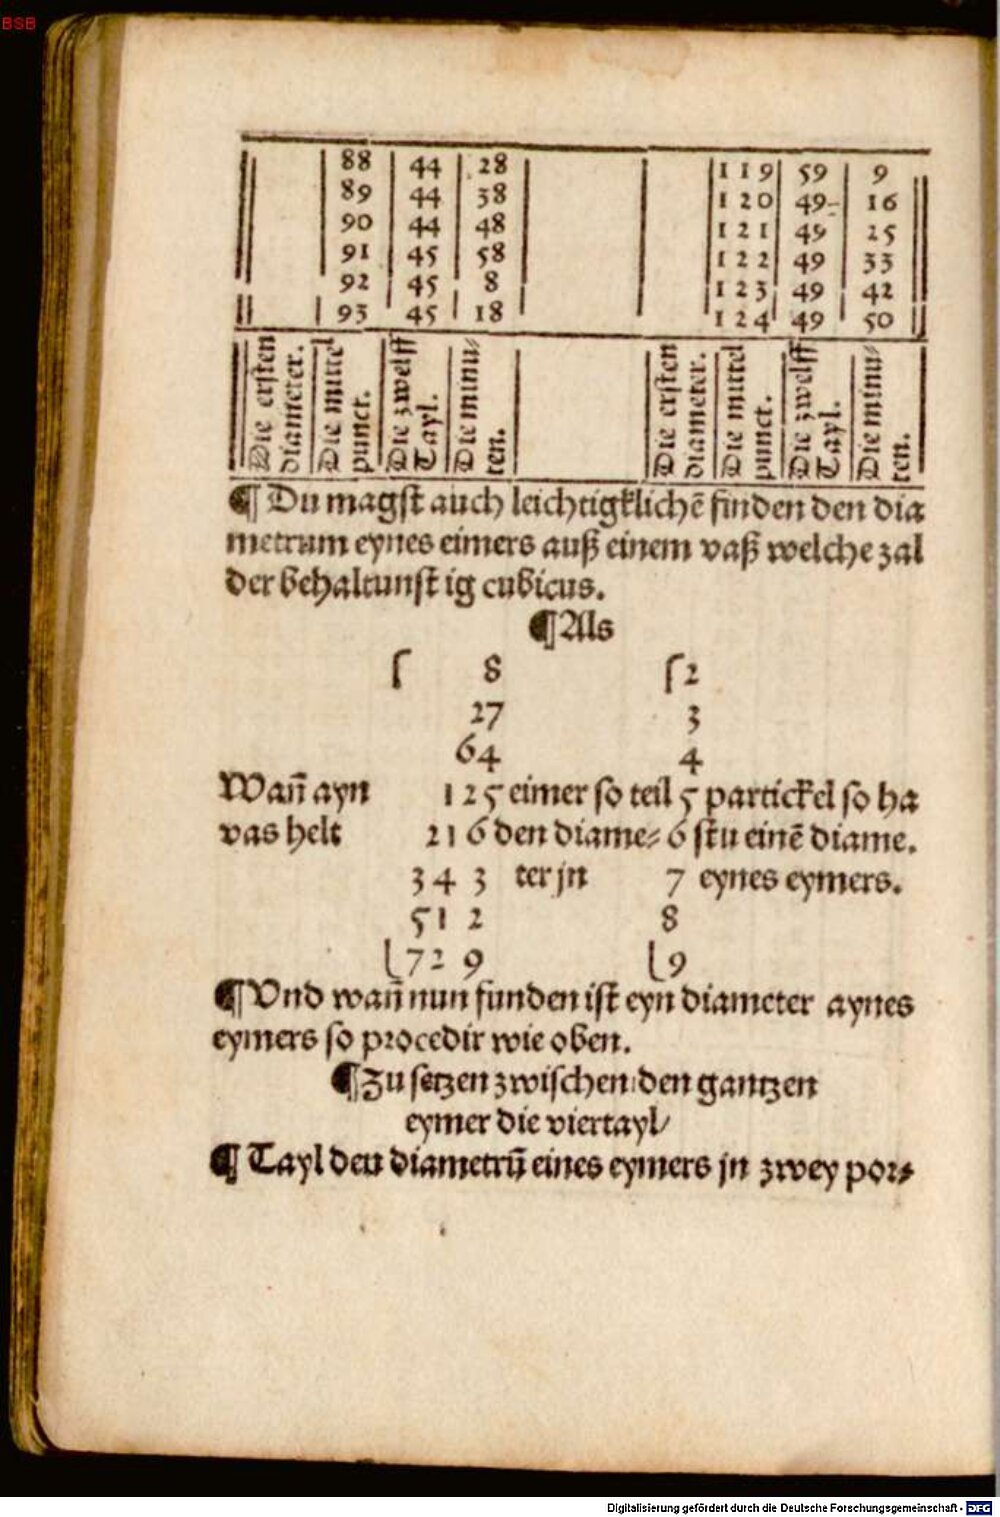 BSB
88 44 28 119 59 9
89 44 38 120 49 16
90 44 48 121 49 25
91 45 58 122 49 33
92 45 8 123 49 42
93 45 18 124 49 50
Die ersten diameter. Die mittel punct. Die zwelff Tayl. Die minu⸗ ten. Die ersten diameter. Die mittel punct. Die zwelff Tayl. Die minu⸗ ten.
¶ Du magst auch leichtigklichē finden den dia
metrum eynes eimers auß einem vaß welche zal
der behaltunst ig cubicus.
¶ Als
8 2
27 3
64 4
Wañ ayn 125 eimer so teil 5 partickel so ha
vas helt 216 den diame⸗ 6 stu einē diame.
343 ter jn 7 eynes eymers.
512 8
729 9
¶ Vnd wañ nun funden ist eyn diameter aynes
eymers so procedir wie oben.
¶ Zu setzen zwischen den gantzen
eymer die viertayl/
¶ Tayl den diametrū eines eymers jn zwey por⸗
Digitalisierung gefördert durch die Deutsche Forschungsgemeinschaft - DFG